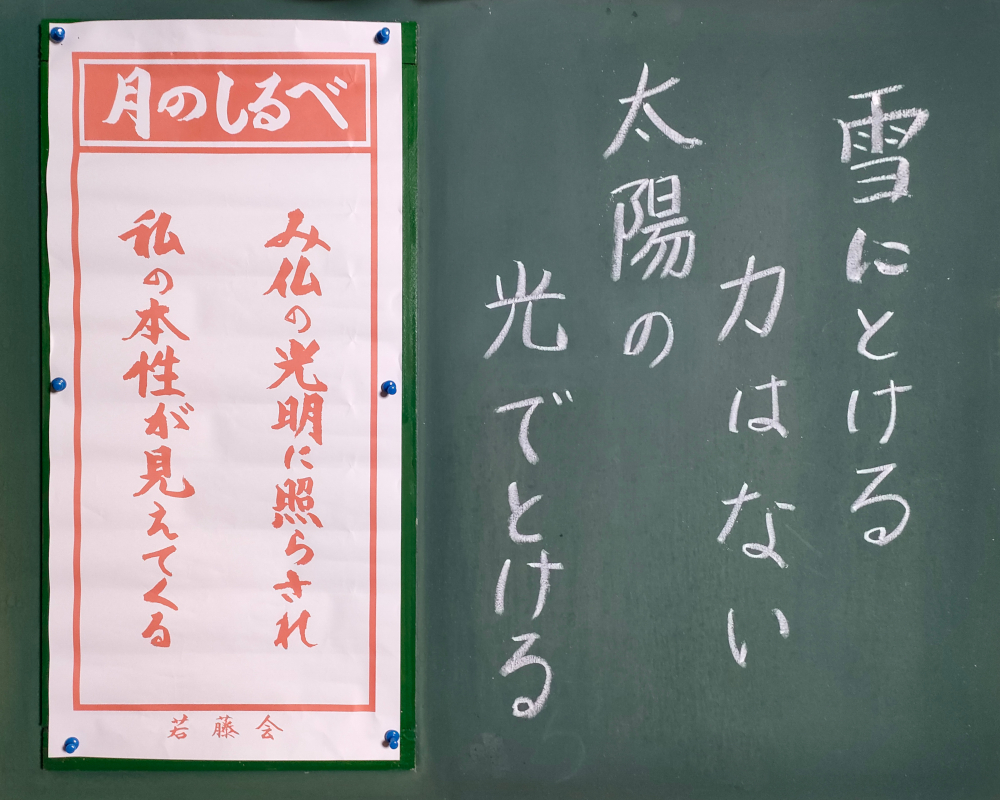 月のしるべ
み仏の光明に照らされ
私の本性が見えてくる
若藤会
雪にとける
力はない
太陽の
光でとける